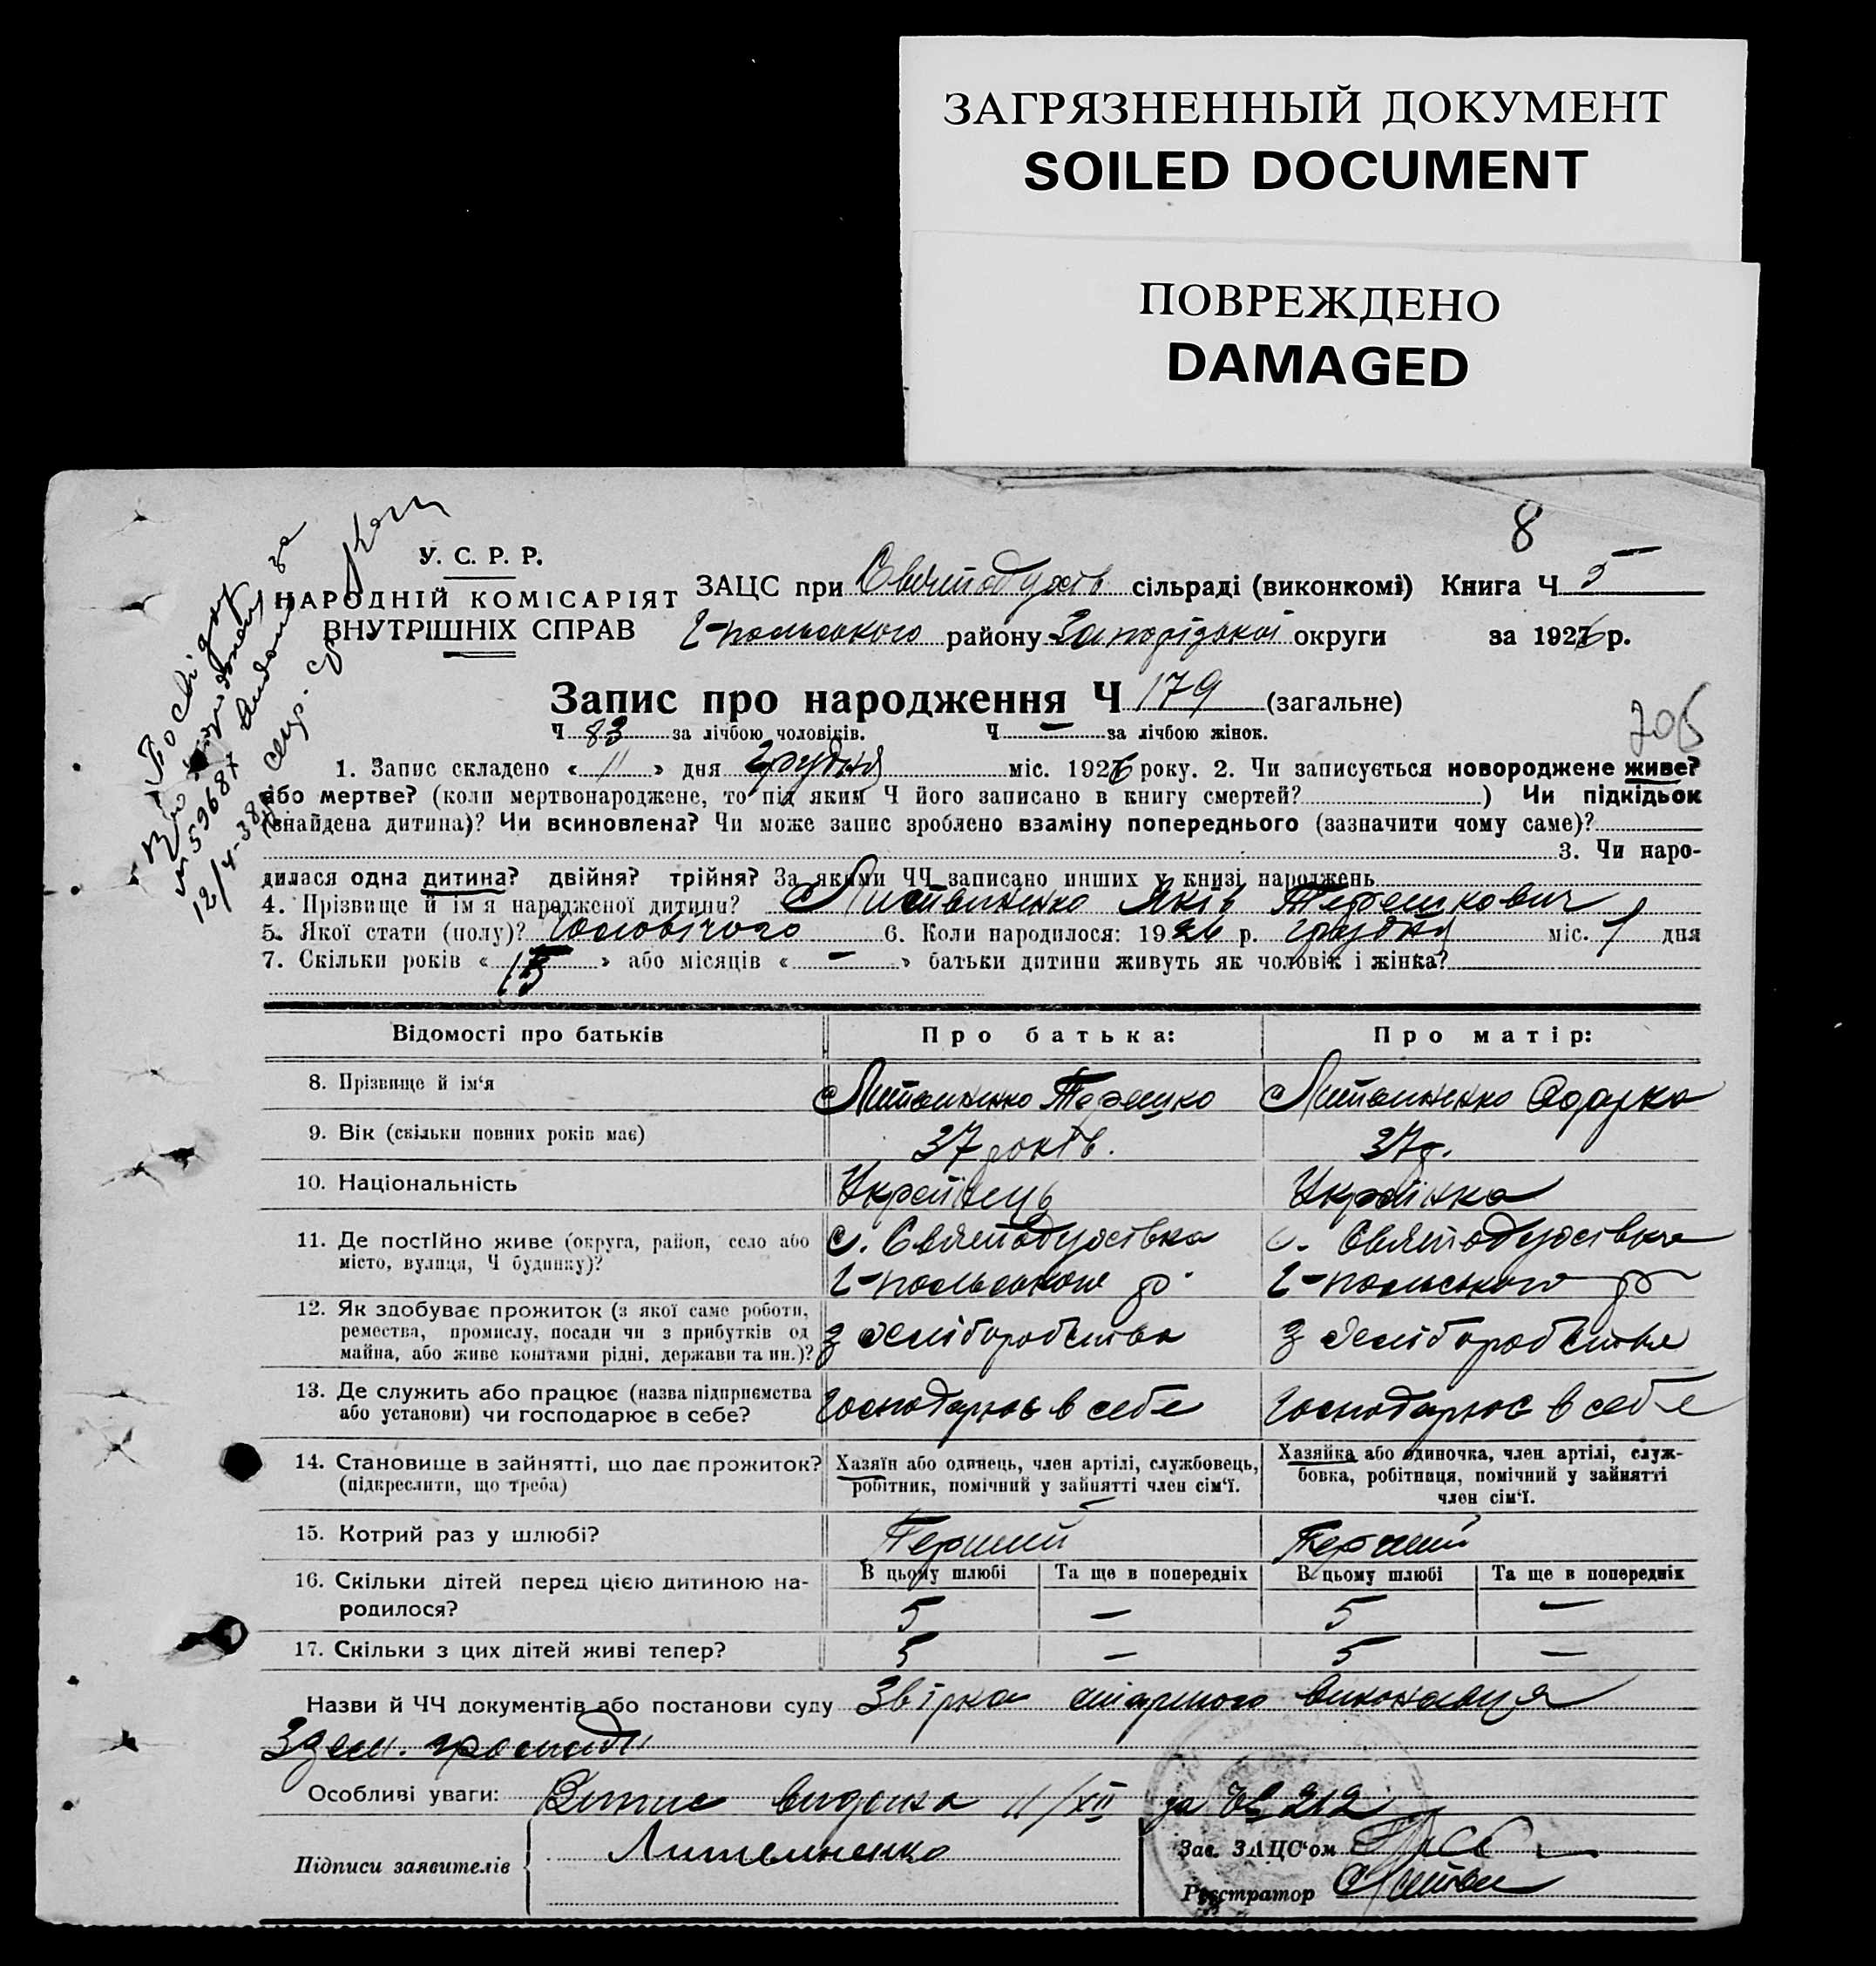 ЗАГРЯЗНЕННЫЙ ДОКУМЕНТ
SOILED DOCUMENT
ПОВРЕЖДЕНО
DAMAGED
8
У. С. Р. Р.
НАРОДНІЙ КОМІСАРІЯТ
ВНУТРІШНІХ СПРАВ
ЗАЦС при Святодухів сільраді (виконкомі) Книга Ч 5
Г-польського району Запорізької округи за 1926 р.
Запис про народження Ч 179 (загальне)
Ч 83 за лічбою чоловіків. Ч — за лічбою жінок.
205
1. Запис складено « 11 » дня грудня міс. 1926 року. 2. Чи записується новороджене живе?
або мертве? (коли мертвонароджене, то під яким Ч його записано в книгу смертей? ) Чи підкідьок
(знайдена дитина)? Чи всиновлена? Чи може запис зроблено взаміну попереднього (зазначити чому саме)?
3. Чи наро-
дилася одна дитина? двійня? трійня? За якими ЧЧ записано инших у книзі народжень
4. Прізвище й ім'я народженої дитини? Литвиненко Яків Терешкович
5. Якої стати (полу)? Чоловічого 6. Коли народилося: 1926 р. грудня міс. 7 дня
7. Скільки років « 15 » або місяців « — » батьки дитини живуть як чоловік і жінка?
Відомості про батьків Про батька: Про матір:
8. Прізвище й ім'я Литвиненко Терешко Литвиненко Одарка
9. Вік (скільки повних років має) 37 років. 37 р.
10. Національність Українець Українка
11. Де постійно живе (округа, район, село або с. Святодухівка с. Святодухівка
місто, вулиця, Ч будинку)? Г-польського р. Г-польського р
12. Як здобуває прожиток (з якої саме роботи,
ремества, промислу, посади чи з прибутків од З хліборобства З хліборобства
майна, або живе коштами рідні, держави та ин.)?
13. Де служить або працює (назва підприємства Господарює в себе Господарює в себе
або установи) чи господарює в себе?
14. Становище в зайнятті, що дає прожиток? Хазяїн або одинець, член артілі, службовець, Хазяйка або одиночка, член артілі, служ-
(підкреслити, що треба) робітник, помічний у зайнятті член сім'ї. бовка, робітниця, помічний у зайнятті
член сім'ї.
15. Котрий раз у шлюбі? Перший Перший
16. Скільки дітей перед цією дитиною на- В цьому шлюбі Та ще в попередніх В цьому шлюбі Та ще в попередніх
родилося? 5 — 5 —
17. Скільки з цих дітей живі тепер? 5 — 5 —
Назви й ЧЧ документів або постанови суду Звірка старшого виконавця
З зем. громади
Особливі уваги: Витис видана 11/XII за № 212
Підписи заявителів Литвиненко
Зав. ЗАЦС'ом
Реєстратор